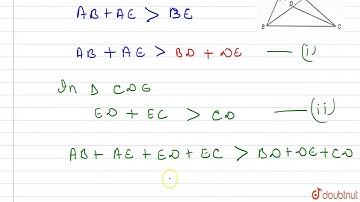 AB + AE > BE
AB + AE > BD + DE — (i)
In Δ CDE
ED + EC > CD — (ii)
AB + AE + ED + EC > BD + DE + CD
D
B
C
doubtnut